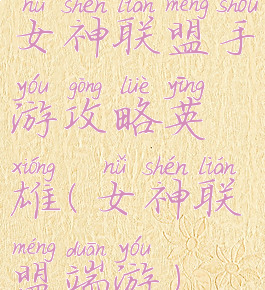 nǚ shén lián méng shǒu
女神联盟手
yóu gōng lüè yīng
游攻略英
xióng ( nǚ shén lián
雄(女神联
méng duān yóu
盟端游)